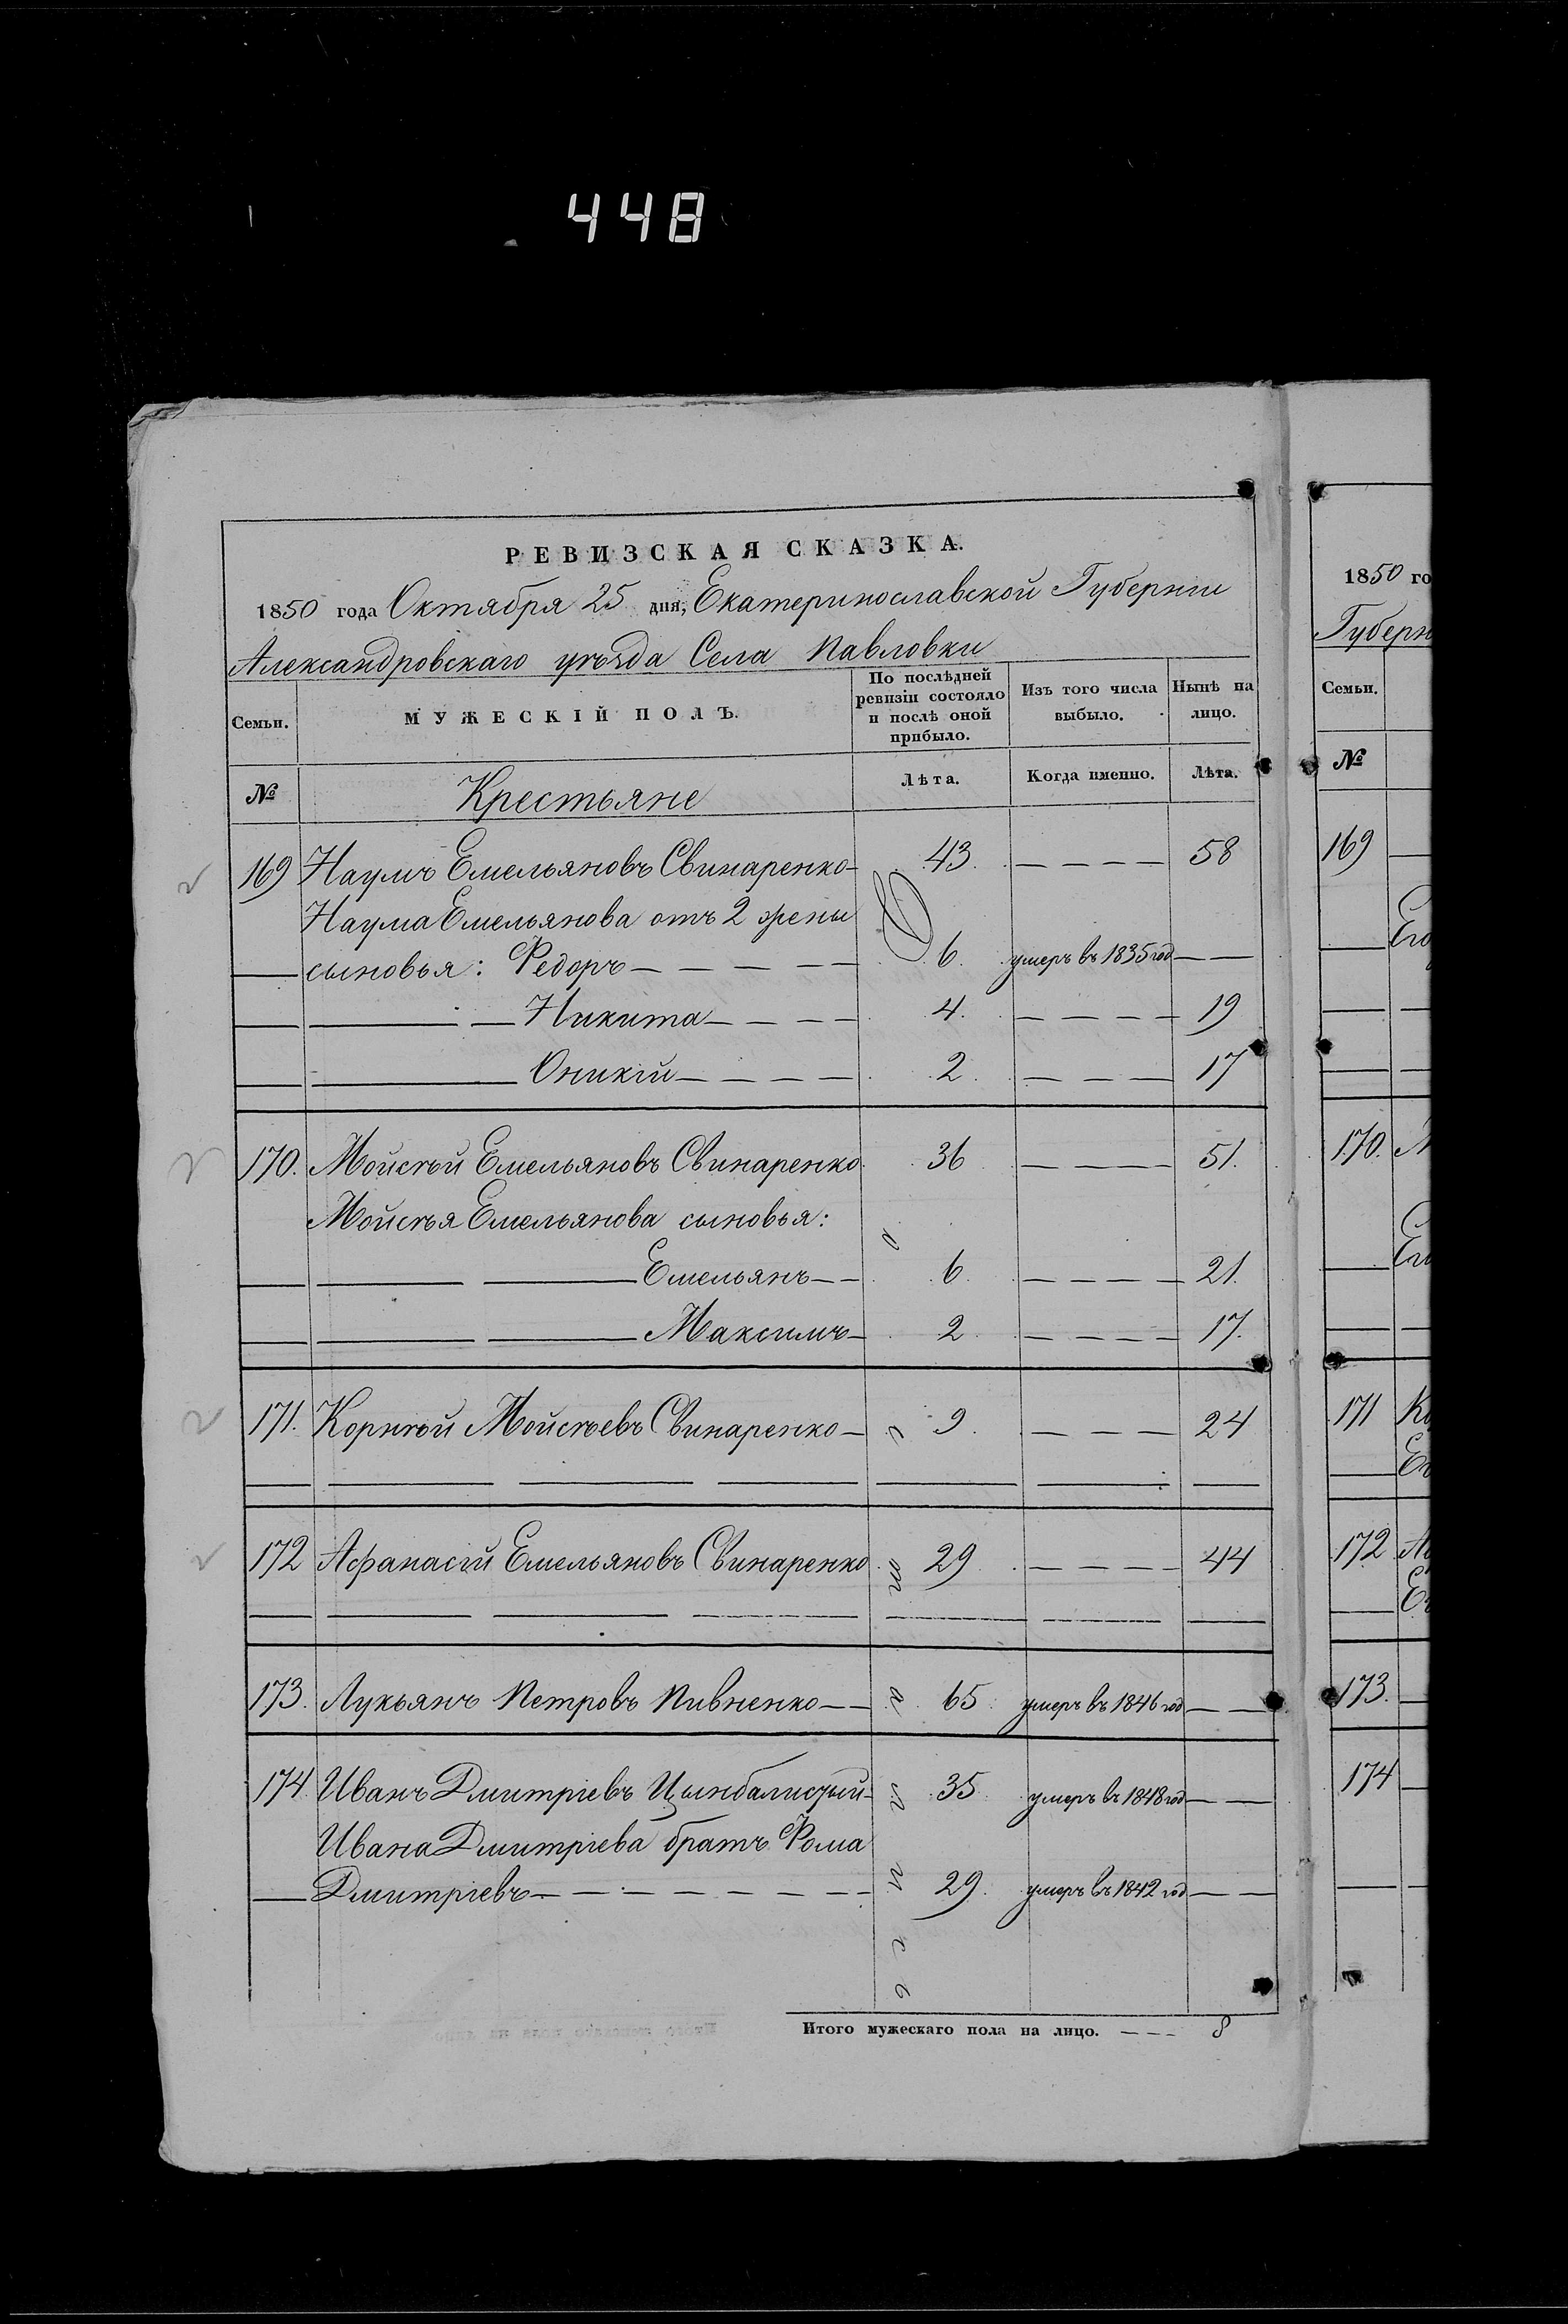 448
РЕВИЗСКАЯ СКАЗКА.
1850 года Октября 25 дня, Екатеринославской Губерніи
Александровскаго уѣзда Села Павловки
Семьи. МУЖЕСКІЙ ПОЛЪ. По послѣдней ревизіи состояло и послѣ оной прибыло. Изъ того числа выбыло. Нынѣ на лицо.
№ Крестьяне Лѣта. Когда именно. Лѣта.
169 Наумъ Емельяновъ Свинаренко 43. 58
Наума Емельянова отъ 2 жены
сыновья: Ѳедоръ 6. умеръ въ 1835 год
Никита 4. 19
Оникій 2. 17
170. Мойсѣй Емельяновъ Свинаренко 36 51.
Мойсѣя Емельянова сыновья:
Емельянъ 6. 21.
Максимъ 2. 17.
171. Корнѣй Мойсѣевъ Свинаренко 9. 24
172 Афанасій Емельяновъ Свинаренко 29 44
173. Лукьянъ Петровъ Пивненко 65. умеръ въ 1846 год
174 Иванъ Дмитріевъ 35. умеръ въ 1848 год
Ивана Дмитріева братъ Ѳома
Дмитріевъ 29. умеръ въ 1842 год
Итого мужескаго пола на лицо. 8
1850 го
Губерн
Семьи.
№
169
Его
170. М
Его
171 Ко
Ег
172 Аф
Ег
173.
174